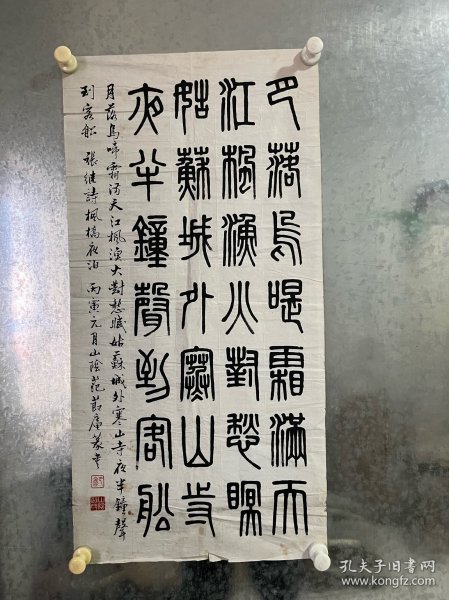 月落烏啼霜滿天
江楓漁火對愁眠
姑蘇城外寒山寺
夜半鐘聲到客船
月落烏啼霜滿天江楓漁火對愁眠姑蘇城外寒山寺夜半鐘聲
到客船 張繼詩楓橋夜泊 丙寅元月山陰范節庵篆書
孔夫子旧书网
www.kongfz.com